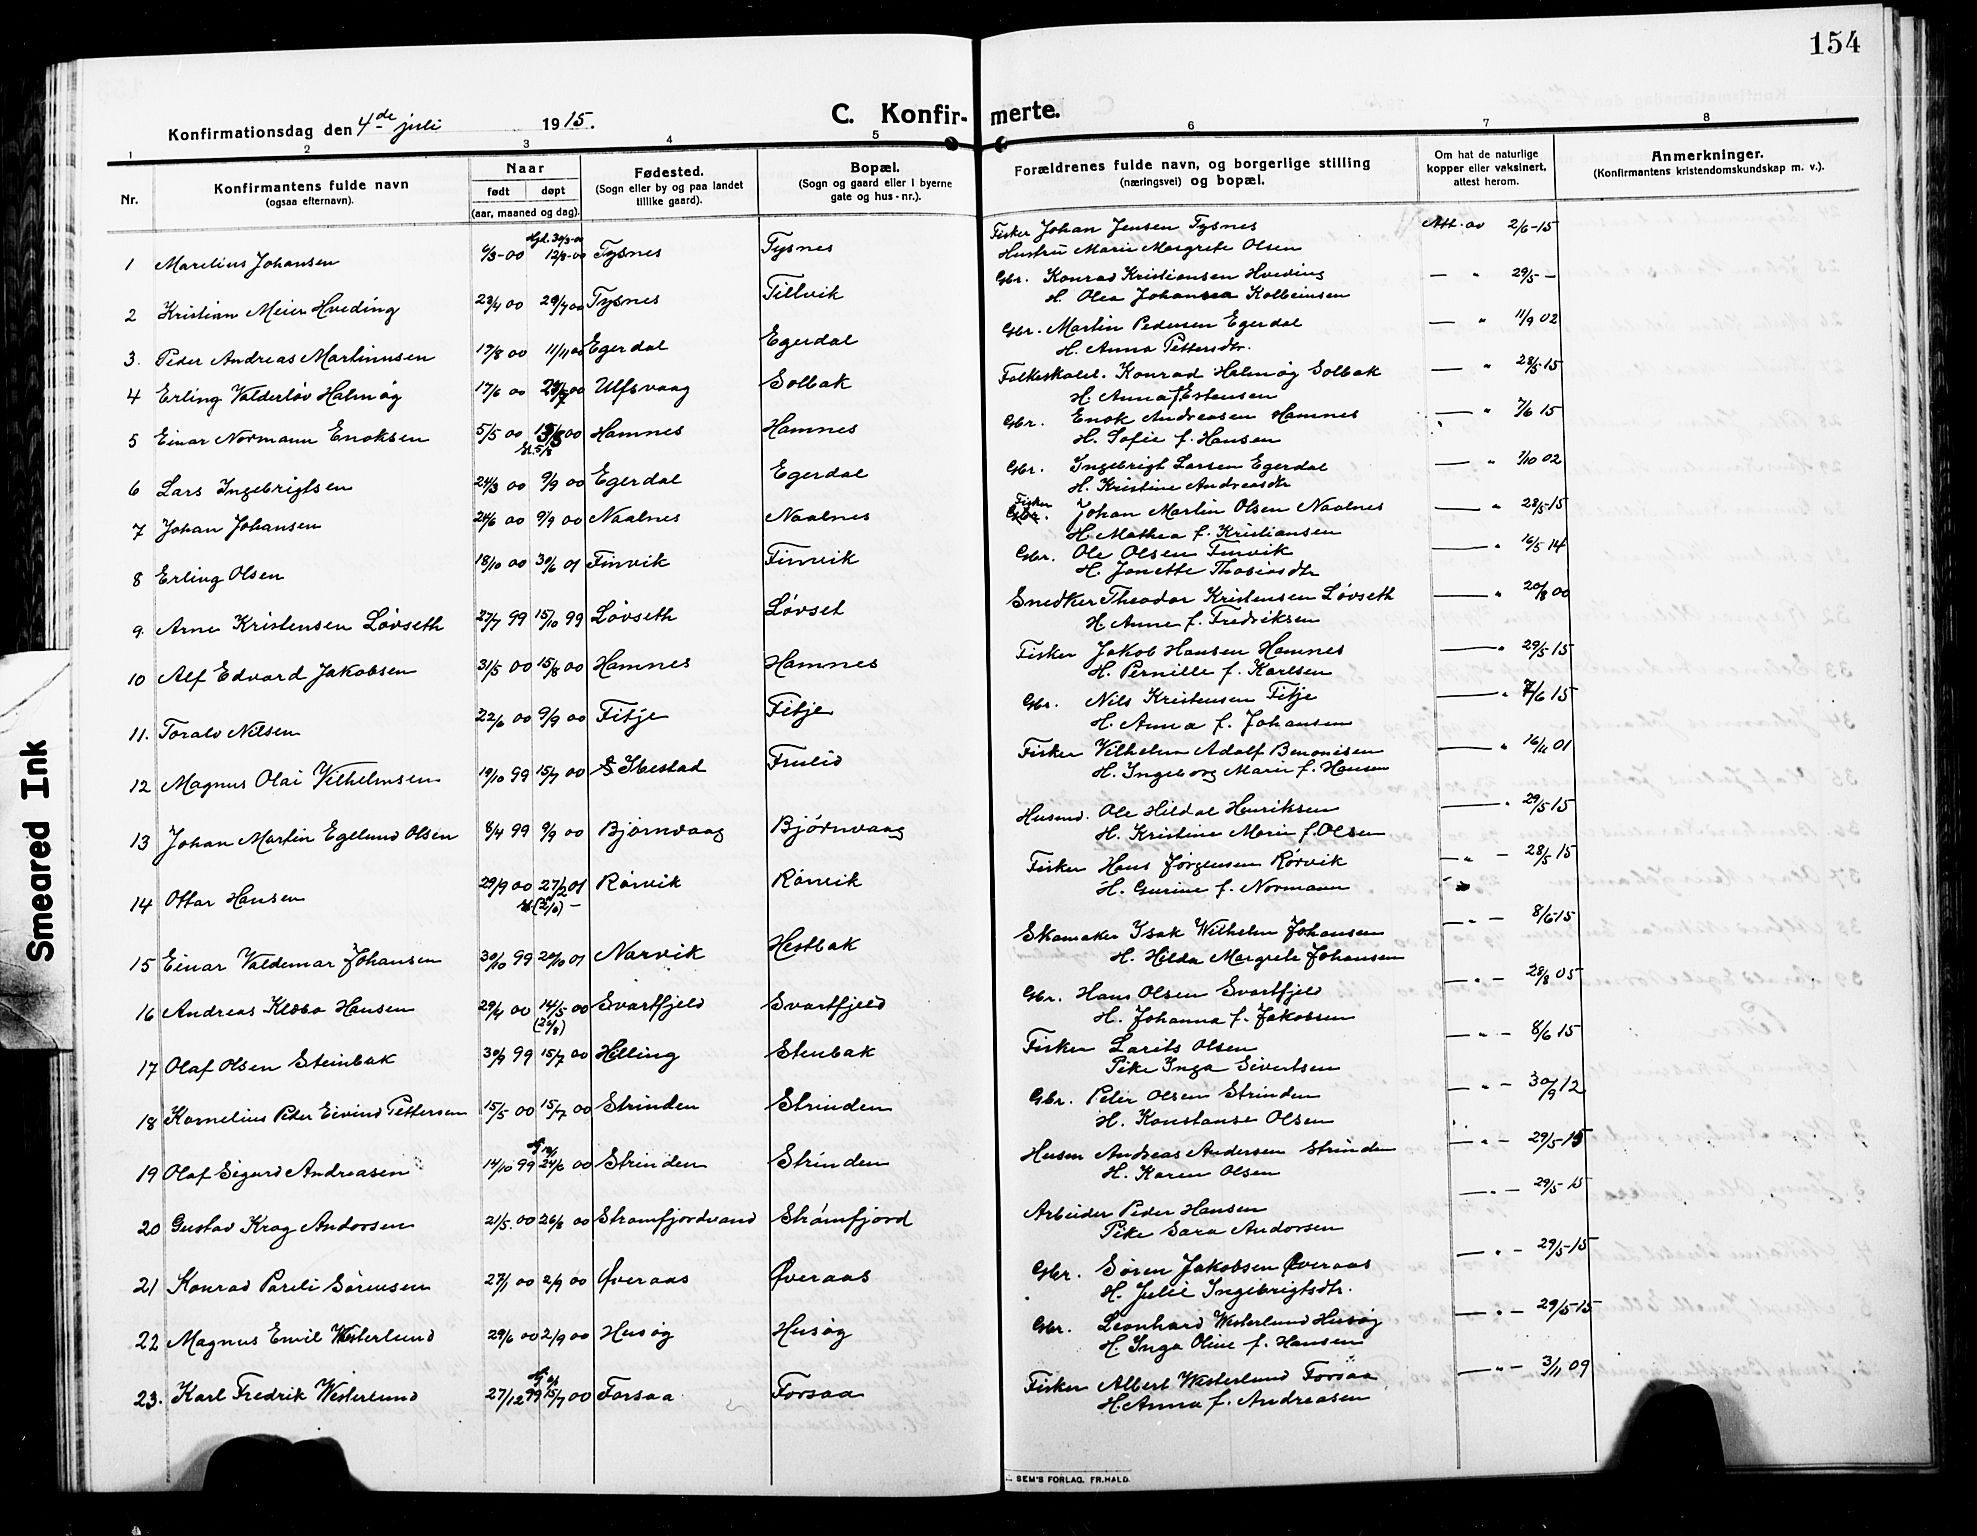 154
Konfirmationsdag den 4de juli 1915.
C. Konfir- merte.
1 2 3 4 5 6 7 8
Nr.
Konfirmantens fulde navn
(ogsaa efternavn).
Naar
født døpt
(aar, maaned og dag).
Fødested.
(Sogn eller by og paa landet
tillike gaard).
Bopæl.
(Sogn og gaard eller i byerne
gate og hus-nr.).
Forældrenes fulde navn, og borgerlige stilling
(næringsvei) og bopæl.
Om hat de naturlige
kopper eller vaksinert,
attest herom.
Anmerkninger.
(Konfirmantens kristendomskundskap m. v.).
1 Marelius Johansen 6/3-00 12/8-00 Tysnes Tysnes Fisker Johan Jensen Tysnes Att. av 2/6-15
Hustru Marie Margrete Olsen
2 Kristian Meier Hveding 23/4 00 29/7 00 Tysnes Tillvik Gbr. Konrad Kristiansen Hveding — " 29/5 —
H. Olea Johansea Kolbeinsen
3. Peder Andreas Martinusen 19/8 00 11/11 00 Egerdal Egerdal Gbr. Martin Pedersen Egerdal — " 11/9 02
H. Anna Pettersdtr.
4 Erling Valderløv Halmøg 17/6 00 Ulfsvaag Solbak Folkeskolel. Konrad Halmøg Solbak — " 28/5-15
H. Anna f. Estensen
5 Einar Normann Enoksen 5/5 00 Hamnes Hamnes Gbr. Enok Andreasen Hamnes — " 7/6 15
H. Sofie f. Hansen
6 Lars Ingebrigtsen 24/3 00 9/9 00 Egerdal Egerdal Gbr. Ingebrigt Larsen Egerdal — " 7/10 02
H. Kristine Andreasdtr
7 Johan Johansen 24/6 00 9/9 00 Naalnes Naalnes Fisker Johan Martin Olsen Naalnes — " 28/5-15
H. Mathea f. Kristiansen
8 Erling Olsen 18/10 00 30/6 01 Finvik Finvik Gbr. Ole Olsen Finvik — " 16/5 14
H. Jonette Thobiasdtr
9. Arne Kristensen Løvseth 27/7 99 15/10 99 Løvseth Løvset Snedker Theodor Kristensen Løvseth — " 20/8 00
H. Anne f. Fredriksen
10 Alf Edvard Jakobsen 31/5 00 15/8 00 Hamnes Hamnes Fisker Jakob Hansen Hamnes — " 29/5-15
H. Pernille f. Karlsen
11. Toralv Nilsen 22/6 00 9/9 00 Fitje Fitje Gbr. Nils Kristensen Fitje — " 7/6 15
H. Anna f. Johansen
12 Magnus Olai Vilhelmsen 19/10 99 15/7 00 Ibestad Frulid Fisker Vilhelm Adolf Benonisen — " 16/11 01
H. Ingeborg Marie f. Hansen
13 Johan Martin Egelund Olsen 8/4 99 9/9 00 Bjørnvaag Bjørnvaag Husmd. Ole Hildal Henriksen — " 29/5 15
H. Kristine Marie f. Olsen
14 Ottar Hansen 29/9 00 27/2 01 Rørvik Rørvik Fisker Hans Jørgensen Rørvik — " — 28/5 15
H. Gurine f. Normann
15 Einar Valdemar Johansen 30/10 99 20/10 01 Narvik Hestbak Skomaker Isak Wilhelm Johansen — " — 8/6-15
H. Hilda Margrete Johansen
16 Andreas Klæbo Hansen 29/4 00 14/5 00 Svartfjeld Svartfjeld Gbr. Hans Olsen Svartfjeld — " — 28/8 05
H. Johanna f. Jakobsen
17 Olaf Olsen Steinbak 30/9 99 15/7 00 Helling Stenbak Fisker Larits Olsen — " — 8/6 15
Pike Inga Sivertsen
18 Kornelius Peder Eivind Pettersen 15/5 00 15/7 00 Strinden Strinden Gbr. Peter Olsen Strinden — " — 30/9 12
H. Konstanse Olsen
19 Olaf Sigurd Andreasen 14/10 99 24/6 00 Strinden Strinden Husm Andreas Andersen Strinden — " — 29/5-15
H. Karen Olsen
20 Gustav Krog Andorsen 21/5. 00 26/8 00 Strømfjordvand Strømfjord Arbeider Peder Hansen — " — 29/5-15
Pike Sara Andorsen
21 Konrad Pareli Sørensen 27/1 00 2/9 00 Øveraas Øveraas Gbr. Søren Jakobsen Øveraas — " — 29/5-15
H. Julie Ingebrigtsdtr.
22 Magnus Emil Westerlund 29/6 00 2/9 00 Husøg Husøg Gbr. Leonhard Westerlund Husøg — " — 29/5-15
H. Inga Oline f. Hansen
23. Karl Fredrik Westerlund 27/12 99 15/7 00 Forsaa Forsaa Fisker Albert Westerlund Forsaa — " — 3/11 09
H. Anna f. Andreasen
SEM'S FORLAG. FR.HALD.
Smeared Ink